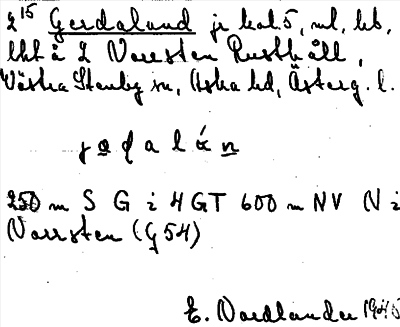 2¹⁵ Gerdaland jr kat 5, ml, bb,
lht å 2 Norrsten Rusthåll,
Västra Stenby sn, Aska hd, Österg. l.
j o d a l á n
250 m S G i 4 GT 600 m NV N i
Norrsten (G 54)
E. Nordlander 1945